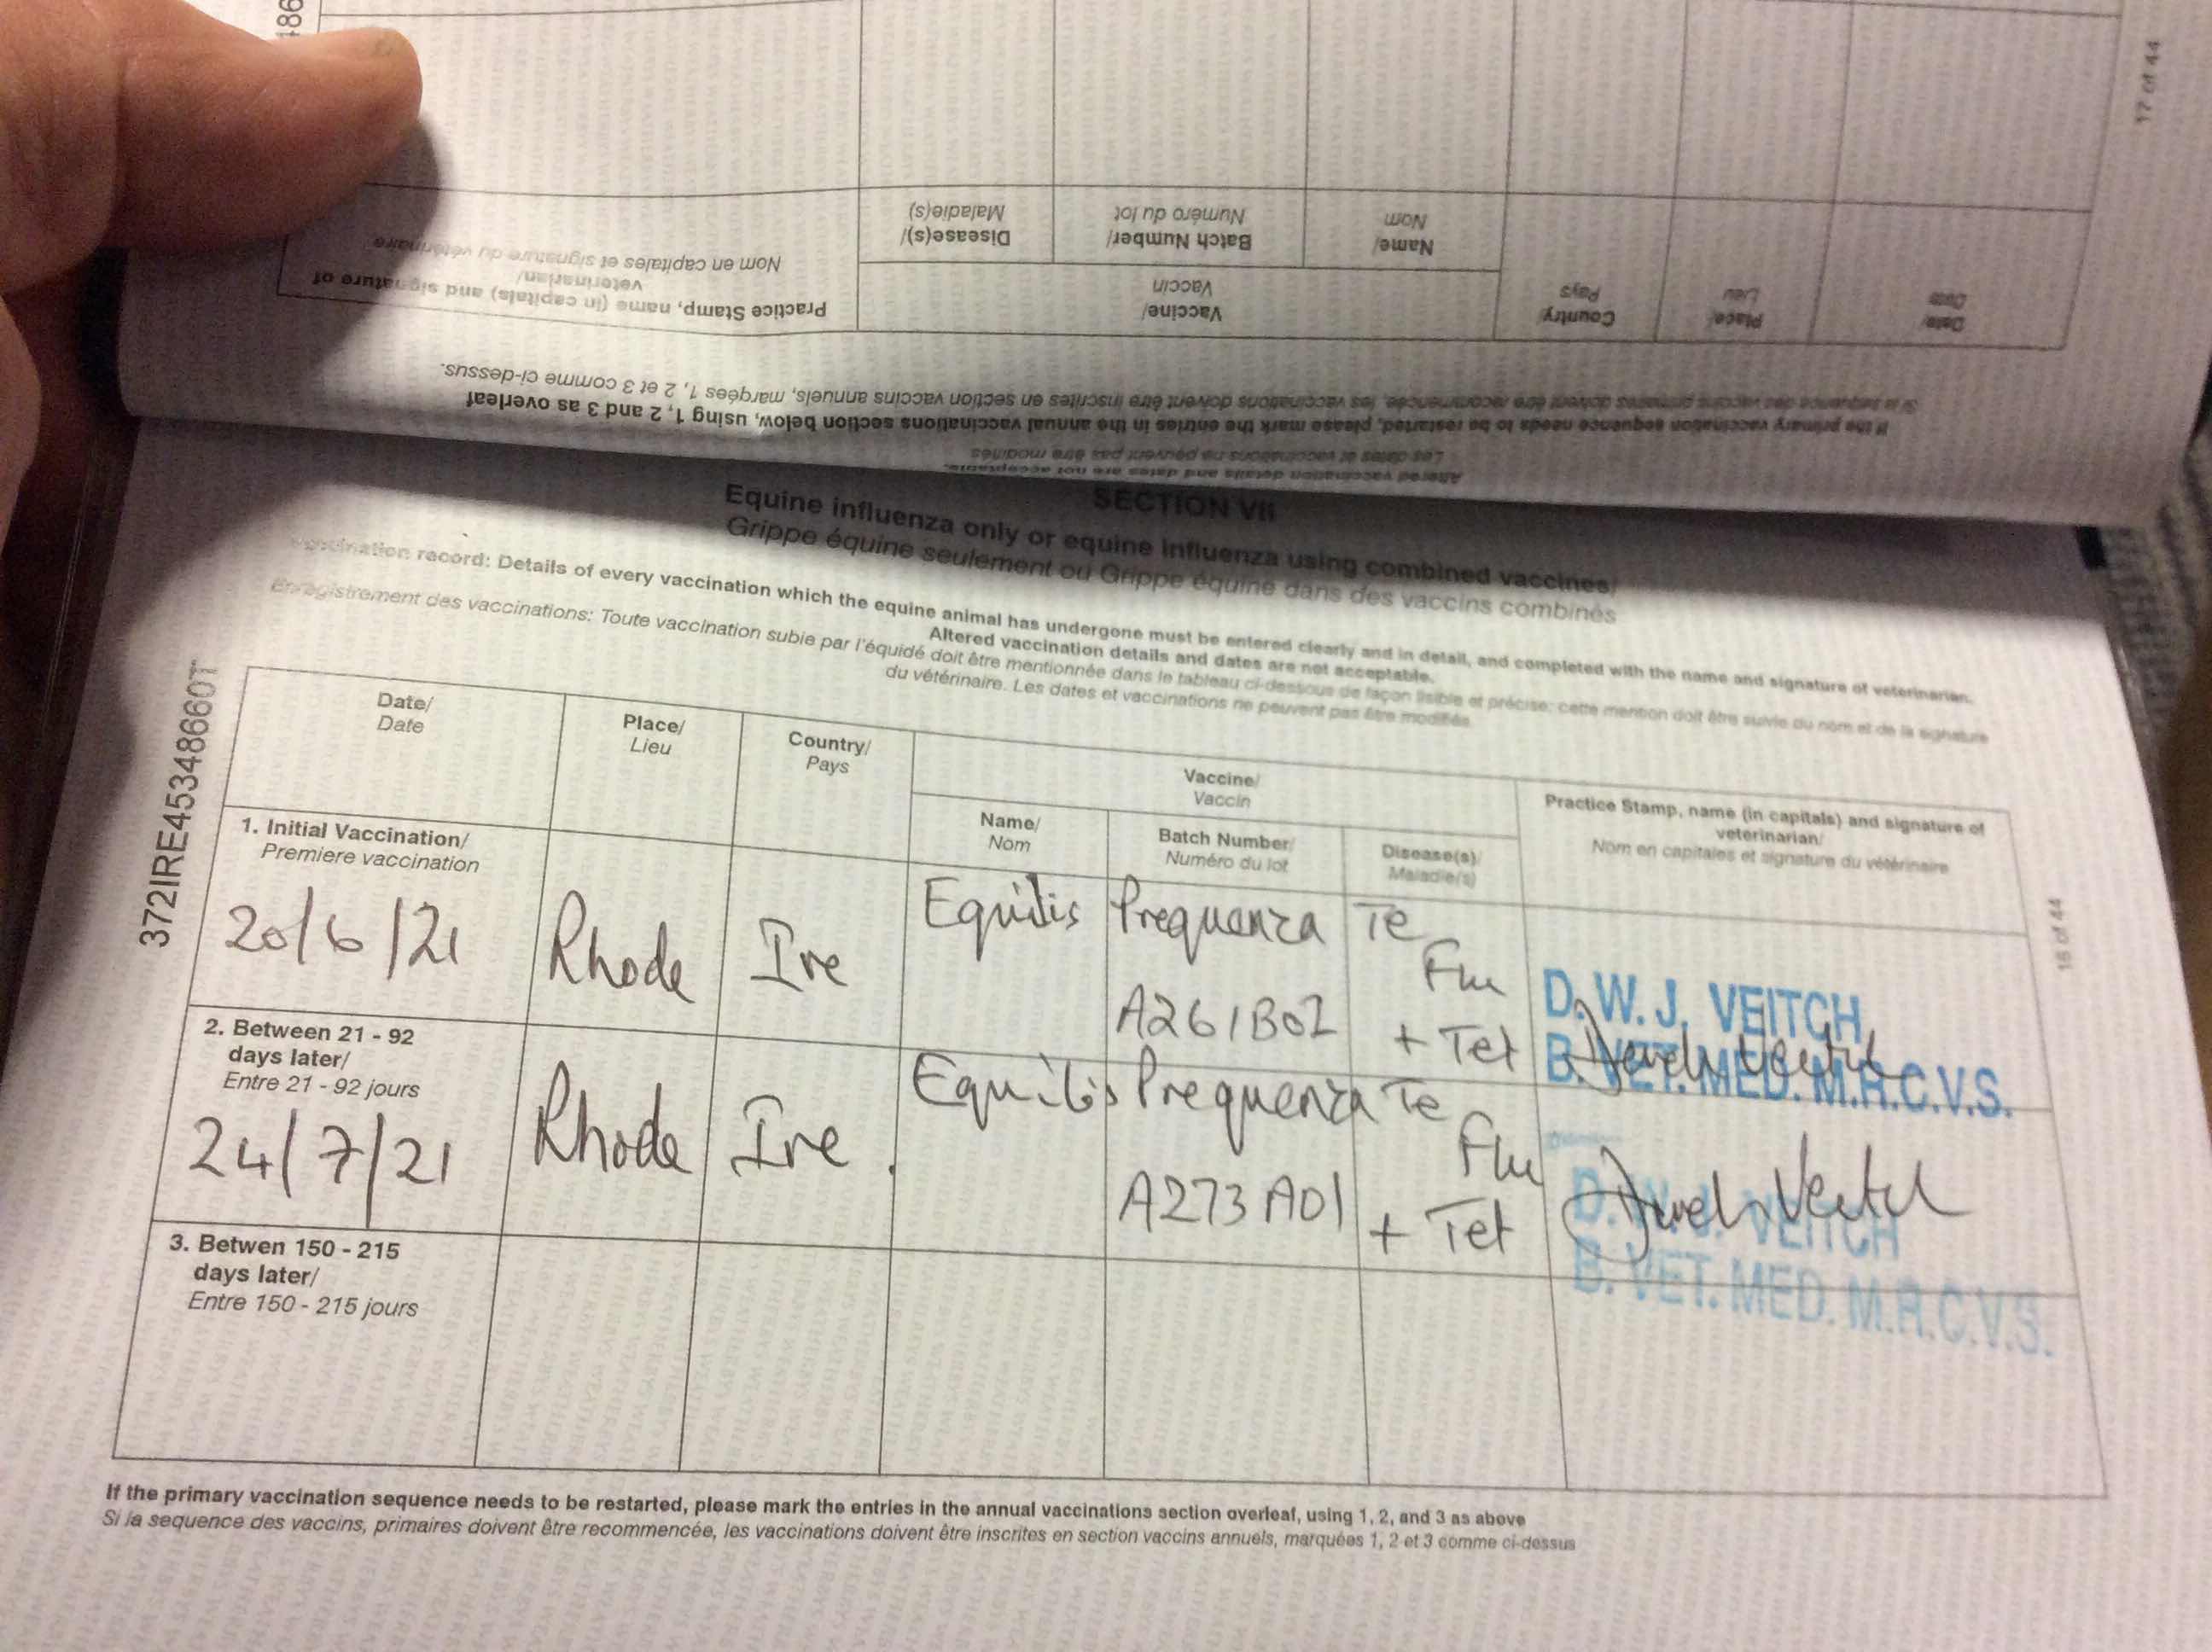 17 of 44
Altered vaccination details and dates are not acceptable.
Les dates et vaccinations ne peuvent pas être modifiés
If the primary vaccination sequence needs to be restarted, please mark the entries in the annual vaccinations section below, using 1, 2 and 3 as overleaf
Si la sequence des vaccins primaires doivent être recommencée, les vaccinations doivent être inscrites en section vaccins annuels, marquées 1, 2 et 3 comme ci-dessus.
Date/
Date
Place/
Lieu
Country/
Pays
Vaccine/
Vaccin
Name/
Nom
Batch Number/
Numéro du lot
Disease(s)/
Maladie(s)
Practice Stamp, name (in capitals) and signature of
veterinarian/
Nom en capitales et signature du vétérinaire
SECTION VII
Equine influenza only or equine influenza using combined vaccines/
Grippe équine seulement ou Grippe équine dans des vaccins combinés
record: Details of every vaccination which the equine animal has undergone must be entered clearly and in detail, and completed with the name and signature of veterinarian.
Altered vaccination details and dates are not acceptable.
Enregistrement des vaccinations: Toute vaccination subie par l'équidé doit être mentionnée dans le tableau ci-dessous de façon lisible et précise; cette mention doit être suivie du nom et de la signature
du vétérinaire. Les dates et vaccinations ne peuvent pas être modifiés
372IRE45348660T
Date/
Date
Place/
Lieu
Country/
Pays
Vaccine/
Vaccin
Name/
Nom
Batch Number/
Numéro du lot
Disease(s)/
Maladie(s)
Practice Stamp, name (in capitals) and signature of
veterinarian/
Nom en capitales et signature du vétérinaire
1. Initial Vaccination/
Premiere vaccination
20/6/21 Rhode Ire Equilis Prequenza Te
Flu
A261B02 + Tet
D. W. J. VEITCH,
B. VET. MED. M.R.C.V.S.
2. Between 21 - 92
days later/
Entre 21 - 92 jours
24/7/21 Rhode Ire. Equilis Prequenza Te
Flu
A273A01 + Tet
D. W. J. VEITCH
B. VET. MED. M.R.C.V.S.
3. Betwen 150 - 215
days later/
Entre 150 - 215 jours
16 of 44
If the primary vaccination sequence needs to be restarted, please mark the entries in the annual vaccinations section overleaf, using 1, 2, and 3 as above
Si la sequence des vaccins, primaires doivent être recommencée, les vaccinations doivent être inscrites en section vaccins annuels, marquées 1, 2 et 3 comme ci-dessus